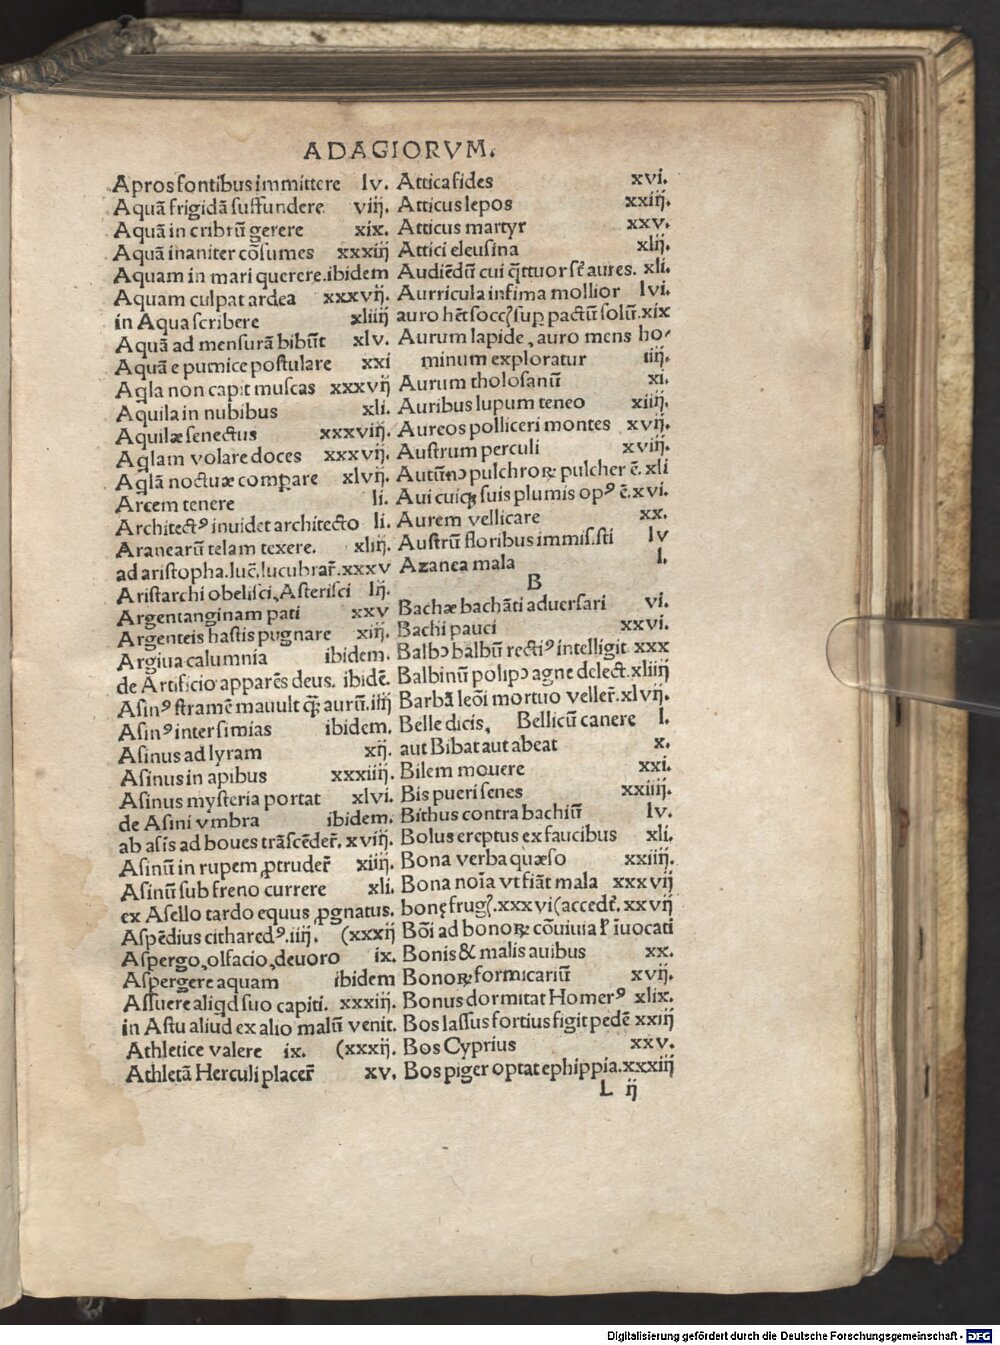 ADAGIORVM.
Apros fontibus immittere lv.
Aquā frigidā ſuffundere viij.
Aquā in cribrū gerere xix.
Aquā inaniter cōſumes xxxiij
Aquam in mari querere. ibidem
Aquam culpat ardea xxxvij.
in Aqua ſcribere xliiij
Aquā ad menſurā bibūt xlv.
Aquā e pumice poſtulare xxi
Aq̃la non capit muſcas xxxvij
Aquila in nubibus xli.
Aquilæ ſenectus xxxviij.
Aq̃lam volare doces xxxvij.
Aq̃lā noctuæ compare xlvij.
Arcem tenere li.
Architectꝰ inuidet architecto li.
Aranearū telam texere. xliij.
ad ariſtopha. luc̄. lucubrar̄. xxxv
Ariſtarchi obeliſci, Aſteriſci lij.
Argentanginam pati xxv
Argenteis haſtis pugnare xiij.
Argiua calumnia ibidem.
de Artificio apparēs deus. ibidē.
Aſinꝰ ſtramē mauult q̃ꝫ aurū. iiij
Aſinꝰ inter ſimias ibidem.
Aſinus ad lyram xij.
Aſinus in apibus xxxiiij.
Aſinus myſteria portat xlvi.
de Aſini vmbra ibidem.
ab aſis ad boues trāſcēder̄. xviij.
Aſinū in rupem ꝓtruder̄ xiiij.
Aſinū ſub freno currere xli.
ex Aſello tardo equus ꝓgnatus.
Aſpēdius citharedꝰ. iiij. (xxxij
Aſpergo, olfacio, deuoro ix.
Aſpergere aquam ibidem
Aſſuere aliq̇d ſuo capiti. xxxiij.
in Aſtu aliud ex alio malū venit.
Athletice valere ix. (xxxij.
Athletā Herculi placer̄ xv.
Attica fides xvi.
Atticus lepos xxiij.
Atticus martyr xxv.
Attici eleuſina xlij.
Audiēdū cui q̃ttuor ſt̄ aures. xli.
Aurricula infima mollior lvi.
auro hēt ſocc ſuꝑ pactū ſolū. xix
Aurum lapide, auro mens ho⸗
minum exploratur iiij.
Aurum tholoſanū xi.
Auribus lupum teneo xiiij.
Aureos polliceri montes xvij.
Auſtrum perculi xviij.
Autūno pulchroꝝ pulcher ē. xli
Aui cuiqꝫ ſuis plumis opꝰ ē. xvi.
Aurem vellicare xx.
Auſtrū floribus immiſ.ſti lv
Azanea mala l.
B
Bachæ bachāti aduerſari vi.
Bachi pauci xxvi.
Balbↄ balbū rectiꝰ intelligit xxx
Balbinū polipↄ agne delect. xliiij
Barbā leōi mortuo veller̄. xlvij.
Belle dicis, Bellicū canere l.
aut Bibat aut abeat x.
Bilem mouere xxi.
Bis pueri ſenes xxiiij.
Bithus contra bachiū lv.
Bolus ereptus ex faucibus xli.
Bona verba quæſo xxiiij.
Bona noīa vt fiāt mala xxxvij
bonę frug. xxxvi (accedt̄. xxvij
Bōi ad bonoꝝ cōuiuia īuocati
Bonis & malis auibus xx.
Bonoꝝ formicariū xvij.
Bonus dormitat Homerꝰ xlix.
Bos laſſus fortius figit pedē xxiij
Bos Cyprius xxv.
Bos piger optat ephippia. xxxiij
L ij
Digitalisierung gefördert durch die Deutsche Forschungsgemeinschaft - DFG